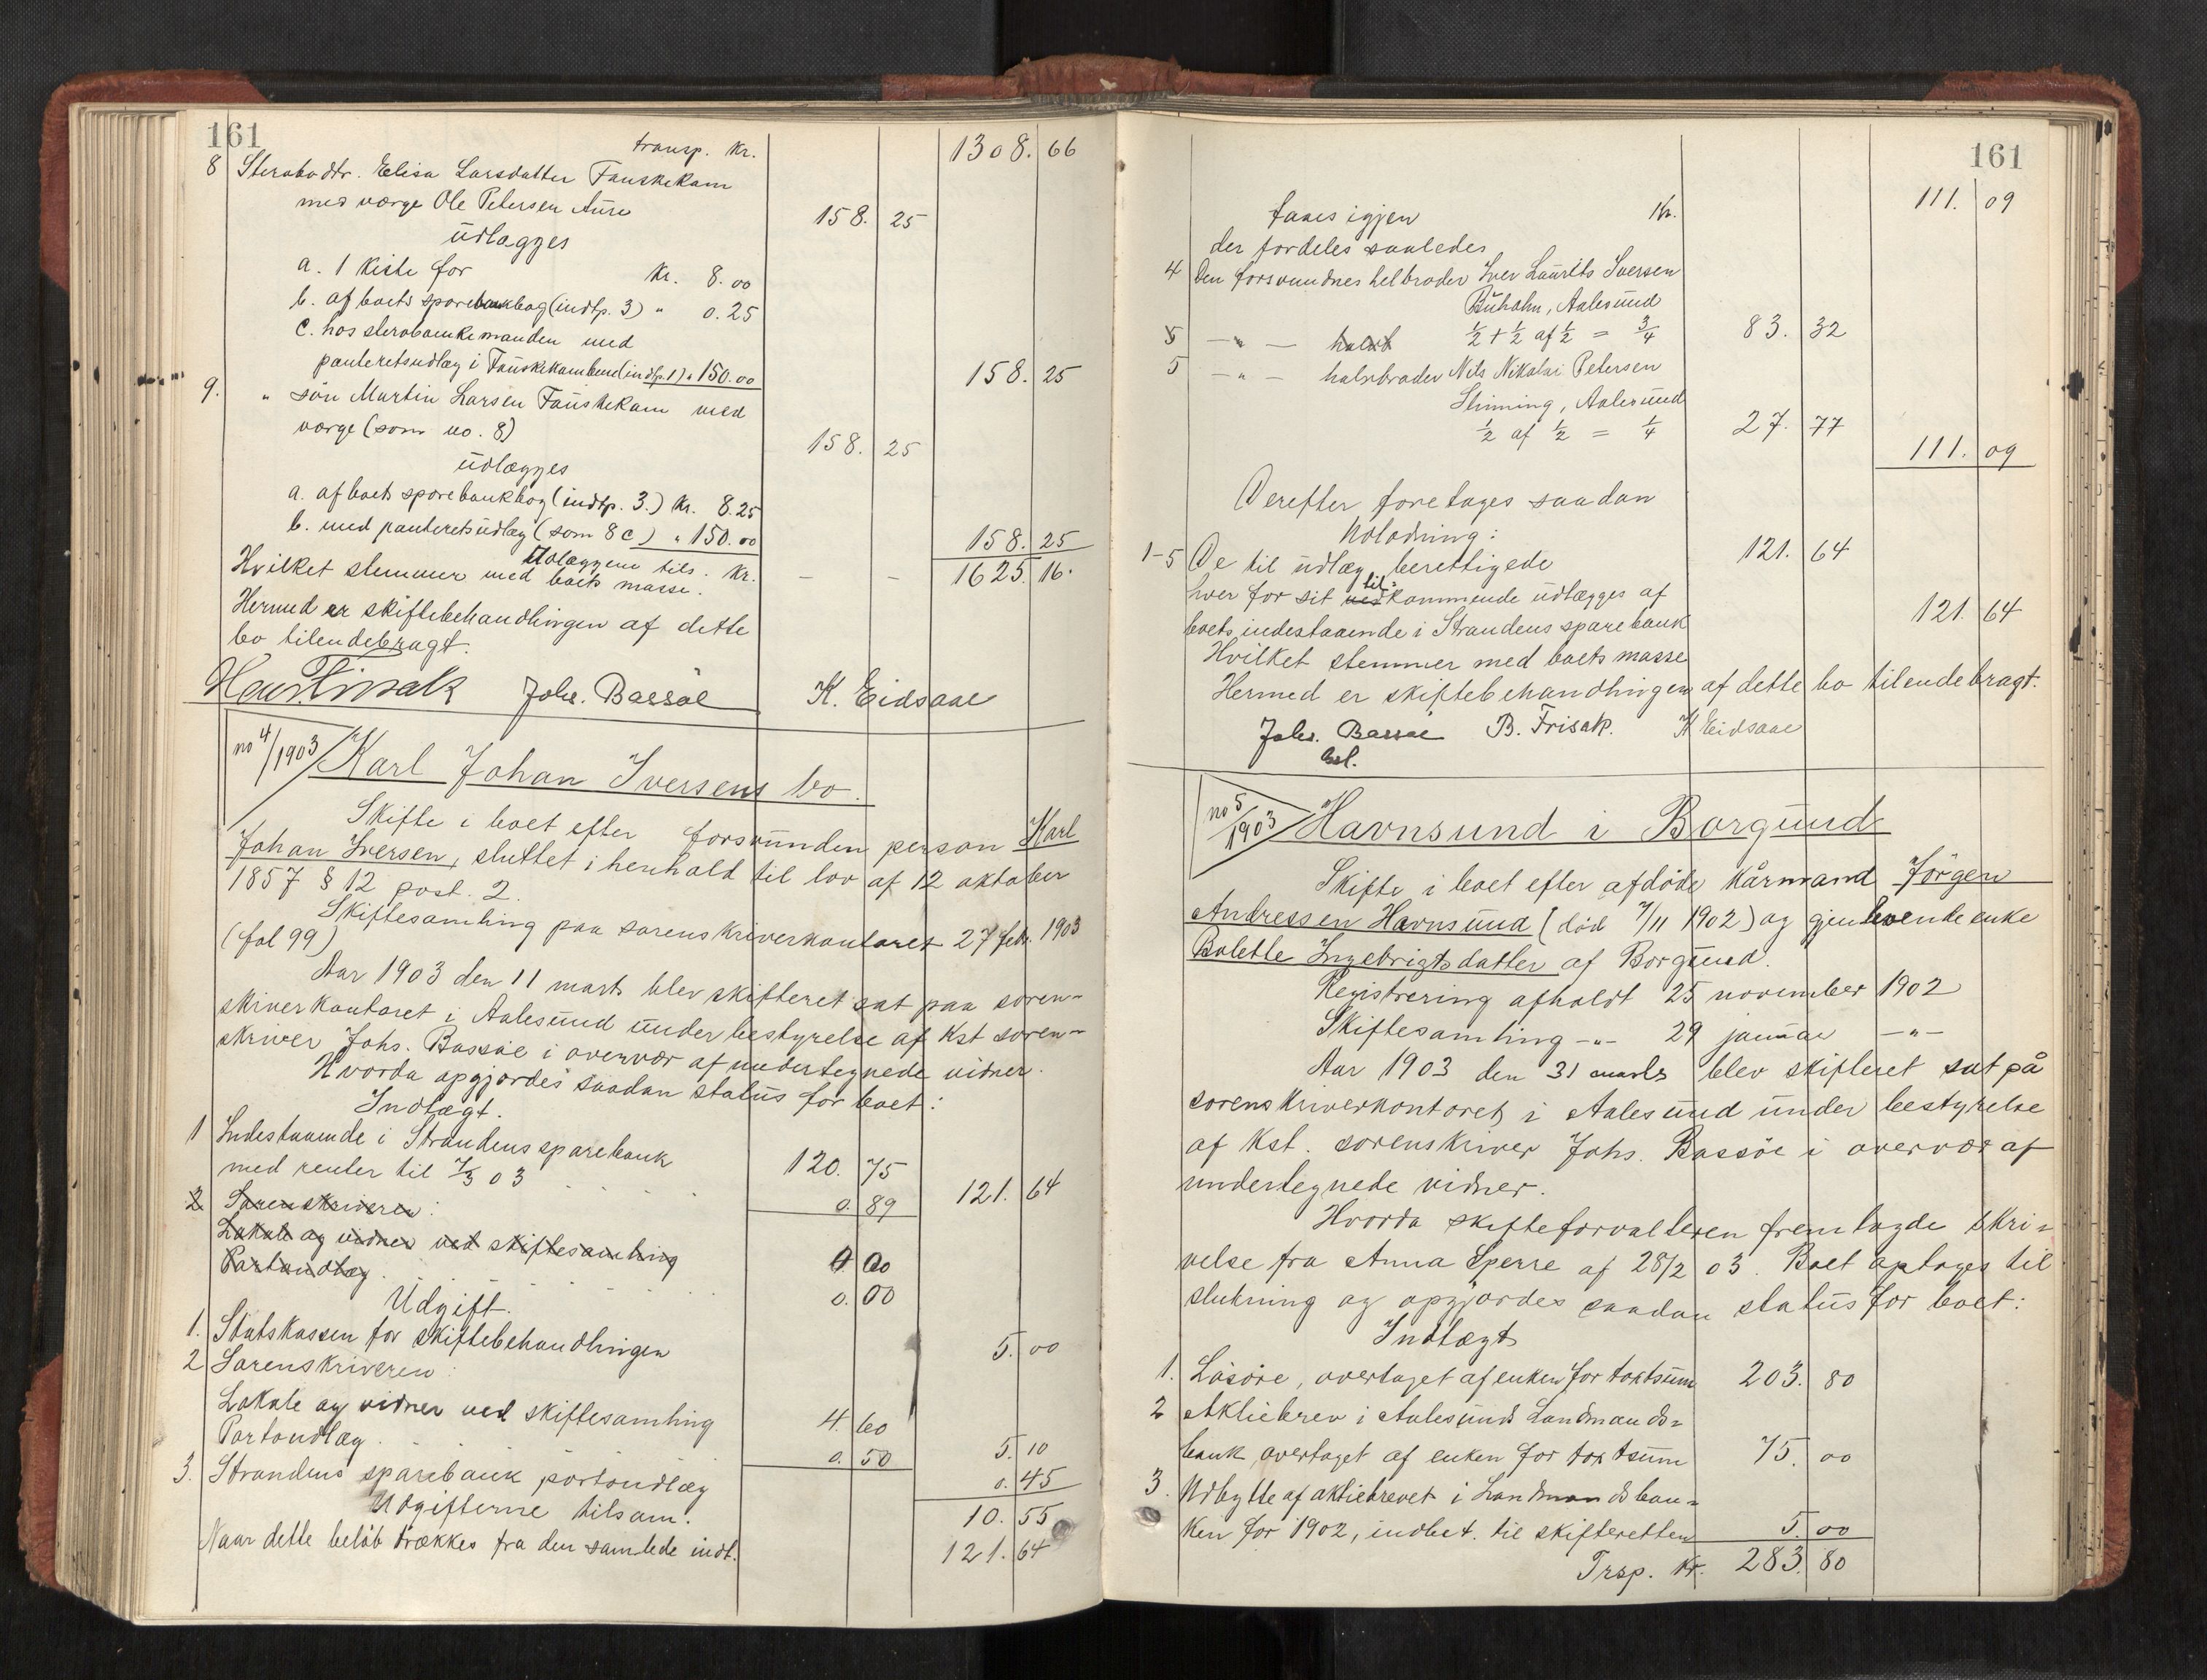 161
transp. Kr. 1308. 66
8 Sterbodtr. Elisa Larsdatter Fauskekam
med værge Ole Petersen Aure 158. 25
udlægges
a. 1 kiste for Kr. 8.00
b. af boets sparebankbog (indtp. 3) " 0.25
c. hos sterboenkemanden med
panteretsudlæg i Fauskekambend (indtp. 1) " 150.00 158. 25
9. " søn Martin Larsen Fauskekam med
værge (som no. 8) 158. 25
udlægges
a. af boets sparebankbog (indtp. 3.) Kr. 8.25
b. med panteretsudlæg (som 8 c) " 150.00 158. 25
Udlæggene tils. Kr. — — 1625. 16.
Hvilket stemmer med boets masse.
Hermed er skiftebehandlingen af dette
bo tilendebragt.
Johs. Bassøe K. Eidsaae
no 4/1903 Karl Johan Iversens bo.
Skifte i boet efter forsvunden person Karl
Johan Iversen, sluttet i henhold til lov af 12 oktober
1857 § 12 post. 2.
Skiftesamling paa sorenskriverkontoret 27 febr. 1903
(fol 99)
Aar 1903 den 11 marts blev skifteret sat paa soren-
skriverkontoret i Aalesund under bestyrelse af kst soren-
skriver Johs. Bassøe i overvær af undertegnede vidner.
Hvorda opgjordes saadan status for boet:
Indtægt.
1 Indestaaende i Strandens sparebank 120. 75
med renter til 7/3 03 0. 89 121. 64
2 Sorenskriveren:
Lokale og vidner ved skiftesamling 0 00
Portoudlæg 0. 00
Udgift.
1. Statskassen for skiftebehandlingen 5. 00
2 Sorenskriveren:
Lokale og vidner ved skiftesamling 4. 60
Portoudlæg 0. 50 5. 10
3. Strandens sparebank portoudlæg 0. 45
Udgifterne tilsam. 10. 55
Naar dette beløb trækkes fra den samlede indt. 121. 64
161
faaes igjen Kr. 111. 09
der fordeles saaledes
4 Den forsvundnes helbroder Iver Laurits Iversen
Buholm, Aalesund
5 — " — halvb ½ + ½ af ½ = ¾ 83. 32
5 — " — halvbroder Nils Nikolai Petersen
Slinning, Aalesund
½ af ½ = ¼ 27. 77 111. 09
Derefter foretages saadan
Udlodning:
1-5 De til udlæg berettigede 121. 64
hver for sit ved til- kommende udlægges af
boets indestaaende i Strandens sparebank 121. 64
Hvilket stemmer med boets masse
Hermed er skiftebehandlingen af dette bo tilendebragt.
Johs. Bassøe B. Frisak. K Eidsaae
bst.
no 5/1903 Havnsund i Borgund
Skifte i boet efter afdøde kårmand Jørgen
Andressen Havnsund (død 7/11 1902) og gjenlevende enke
Bolette Ingebrigtsdatter af Borgund.
Registrering afholdt 25 november 1902
Skiftesamling - " - 29 januar — " —
Aar 1903 den 31 marts blev skifteret sat på
sorenskriverkontoret i Aalesund under bestyrelse
af kst. sorenskriver Johs. Bassøe i overvær af
undertegnede vidner.
Hvorda skifteforvalteren fremlagde skri-
velse fra Anna Sperre af 28/2 03. Boet optoges til
slutning og opgjordes saadan status for boet:
Indtægt
1. Løsøre, overtaget af enken for taxtsum 203. 80
2 Aktiebrev i Aalesunds Landmands-
bank overtaget af enken for taxtsum 75. 00
3. Udbytte af aktiebrevet i Landmandsban-
ken for 1902, indbet. til skifteretten 5. 00
Trsp. Kr. 283. 80